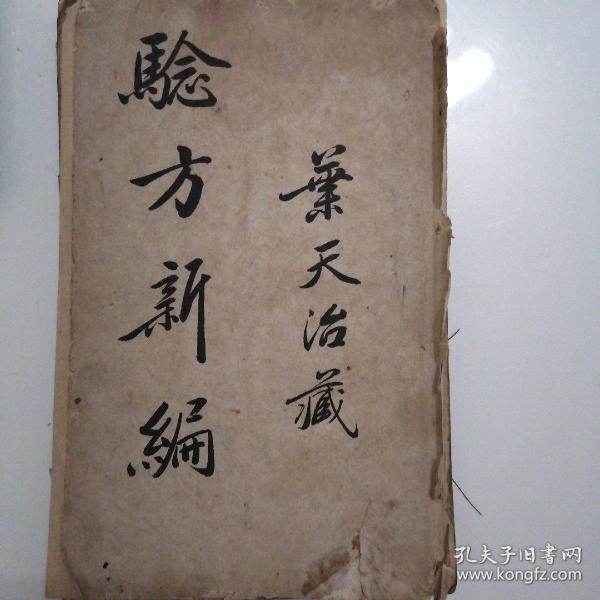 騐方新編
葉天治藏
孔夫子旧書网
www.kongfz.com